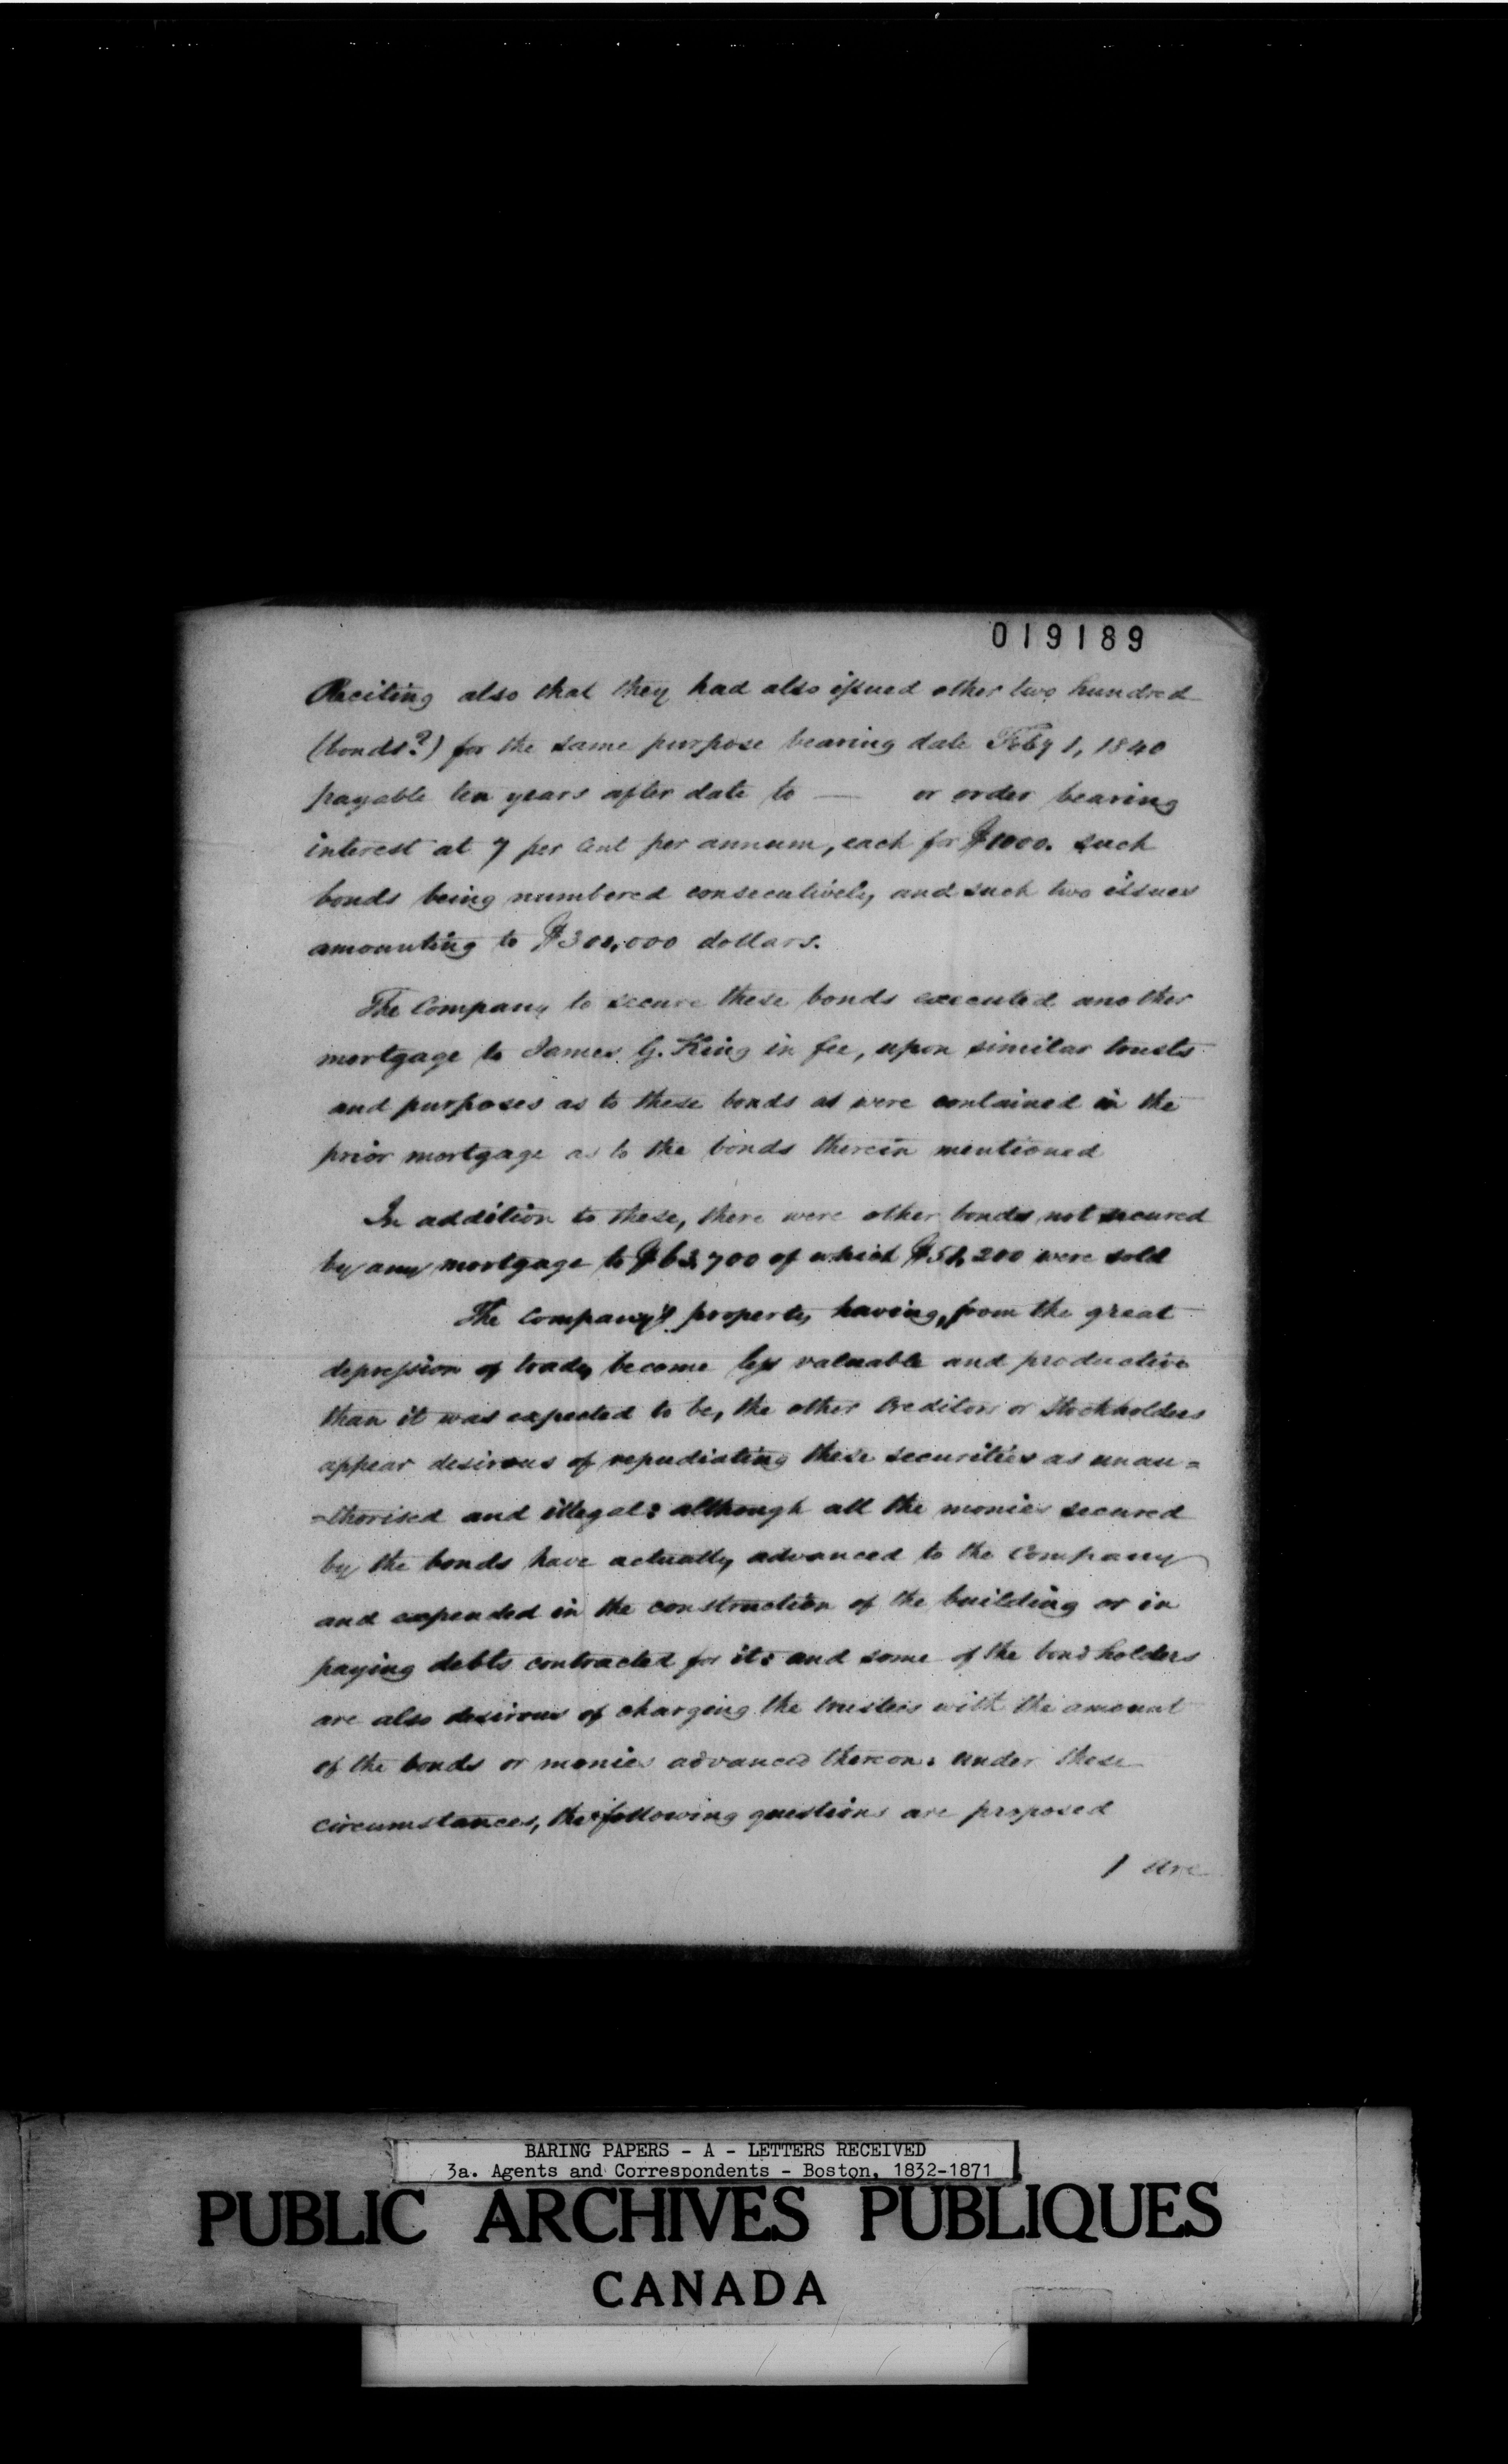 019189
Reciting also that they had also issued other two hundred
(bonds?) for the same purpose bearing date Feby 1, 1840
payable ten years after date to — or order bearing
interest at 7 per Cent per annum, each for $1000. such
bonds being numbered consecutively, and such two issues
amounting to $300,000 dollars.
The Company to secure these bonds executed another
mortgage to James G. King in fee, upon similar trusts
and purposes as to these bonds as were contained in the
prior mortgage as to the bonds therein mentioned
In addition to these, there were other bonds not secured
by any mortgage to of which were sold
The Company's property having, from the great
depression of trade, become less valuable and productive
than it was expected to be, the other Creditors or Stockholders
appear desirous of repudiating these securities as unau=
=thorised and illegal: although all the monies secured
by the bonds have actually advanced to the Company
and expended in the construction of the building or in
paying debts contracted for it: and some of the bond holders
are also desirous of charging the trustees with the amount
of the bonds or monies advanced thereon. Under these
circumstances, the following questions are proposed
1 Are
BARING PAPERS - A - LETTERS RECEIVED
3a. Agents and Correspondents - Boston, 1832-1871
PUBLIC ARCHIVES PUBLIQUES
CANADA